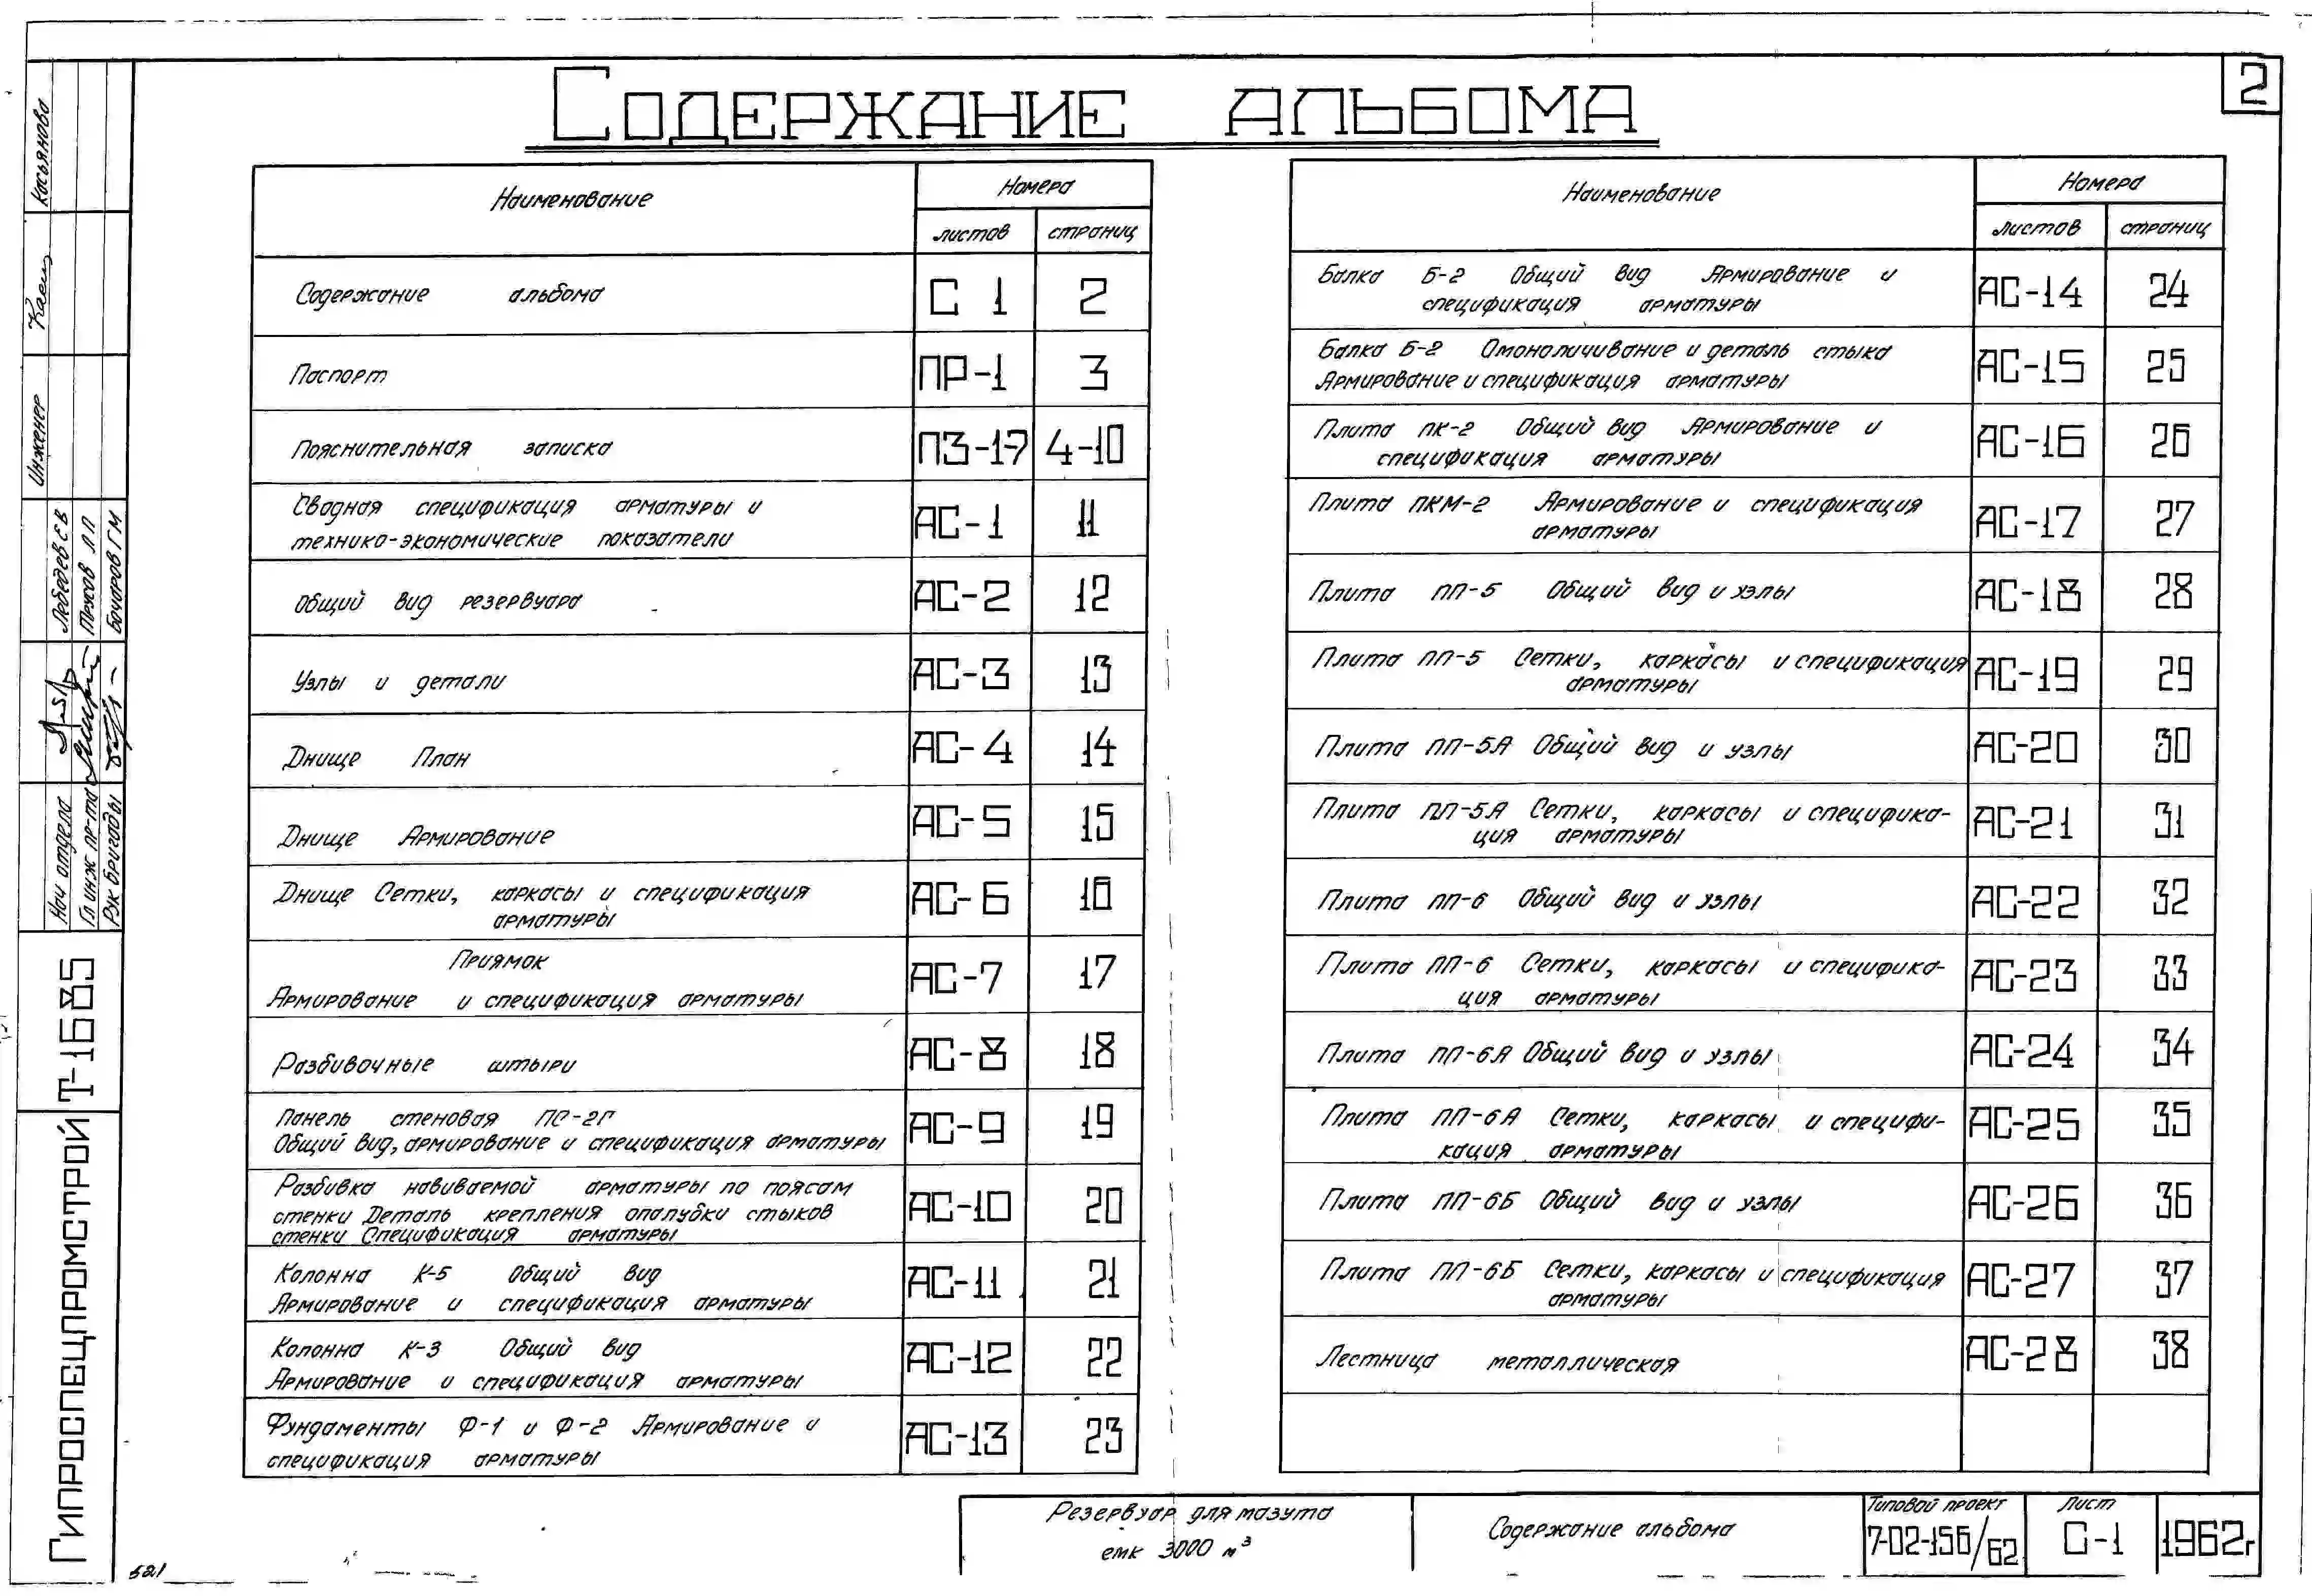 2
Содержание альбома
Наименование
Номера
листов страниц
Содержание альбома С 1 2
Паспорт ПР-1 3
Пояснительная записка ПЗ-1-7 4-10
Сводная спецификация арматуры и
технико-экономические показатели АС-1 11
Общий вид резервуара АС-2 12
Узлы и детали АС-3 13
Днище План АС-4 14
Днище Армирование АС-5 15
Днище Сетки, каркасы и спецификация
арматуры АС-6 16
Приямок
Армирование и спецификация арматуры АС-7 17
Разбивочные штыри АС-8 18
Панель стеновая ПС-2Г
Общий вид, армирование и спецификация арматуры АС-9 19
Разбивка навиваемой арматуры по поясам
стенки Деталь крепления опалубки стыков
стенки Спецификация арматуры АС-10 20
Колонна К-5 Общий вид
Армирование и спецификация арматуры АС-11 21
Колонна К-3 Общий вид
Армирование и спецификация арматуры АС-12 22
Фундаменты Ф-1 и Ф-2 Армирование и
спецификация арматуры АС-13 23
Наименование
Номера
листов страниц
Балка Б-2 Общий вид Армирование и
спецификация арматуры АС-14 24
Балка Б-2 Омоноличивание и деталь стыка
Армирование и спецификация арматуры АС-15 25
Плита ПК-2 Общий вид Армирование и
спецификация арматуры АС-16 26
Плита ПКМ-2 Армирование и спецификация
арматуры АС-17 27
Плита ПП-5 Общий вид и узлы АС-18 28
Плита ПП-5 Сетки, каркасы и спецификация
арматуры АС-19 29
Плита ПП-5А Общий вид и узлы АС-20 30
Плита ПП-5А Сетки, каркасы и специфика-
ция арматуры АС-21 31
Плита ПП-6 Общий вид и узлы АС-22 32
Плита ПП-6 Сетки, каркасы и специфика-
ция арматуры АС-23 33
Плита ПП-6А Общий вид и узлы АС-24 34
Плита ПП-6А Сетки, каркасы и специфи-
кация арматуры АС-25 35
Плита ПП-6Б Общий вид и узлы АС-26 36
Плита ПП-6Б Сетки, каркасы и спецификация
арматуры АС-27 37
Лестница металлическая АС-28 38
Резервуар для мазута
емк 3000 м³
Содержание альбома
Типовой проект
7-02-156/62
Лист
С-1
1962г
Гипроспецпромстрой
Т-1685
Нач отдела Лебедев С В
Гл инж пр-та Л П
Рук бригады Бочаров Г М
Инженер Касьянова
521